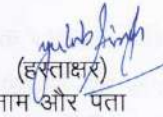 (हस्ताक्षर)
नाम और पता